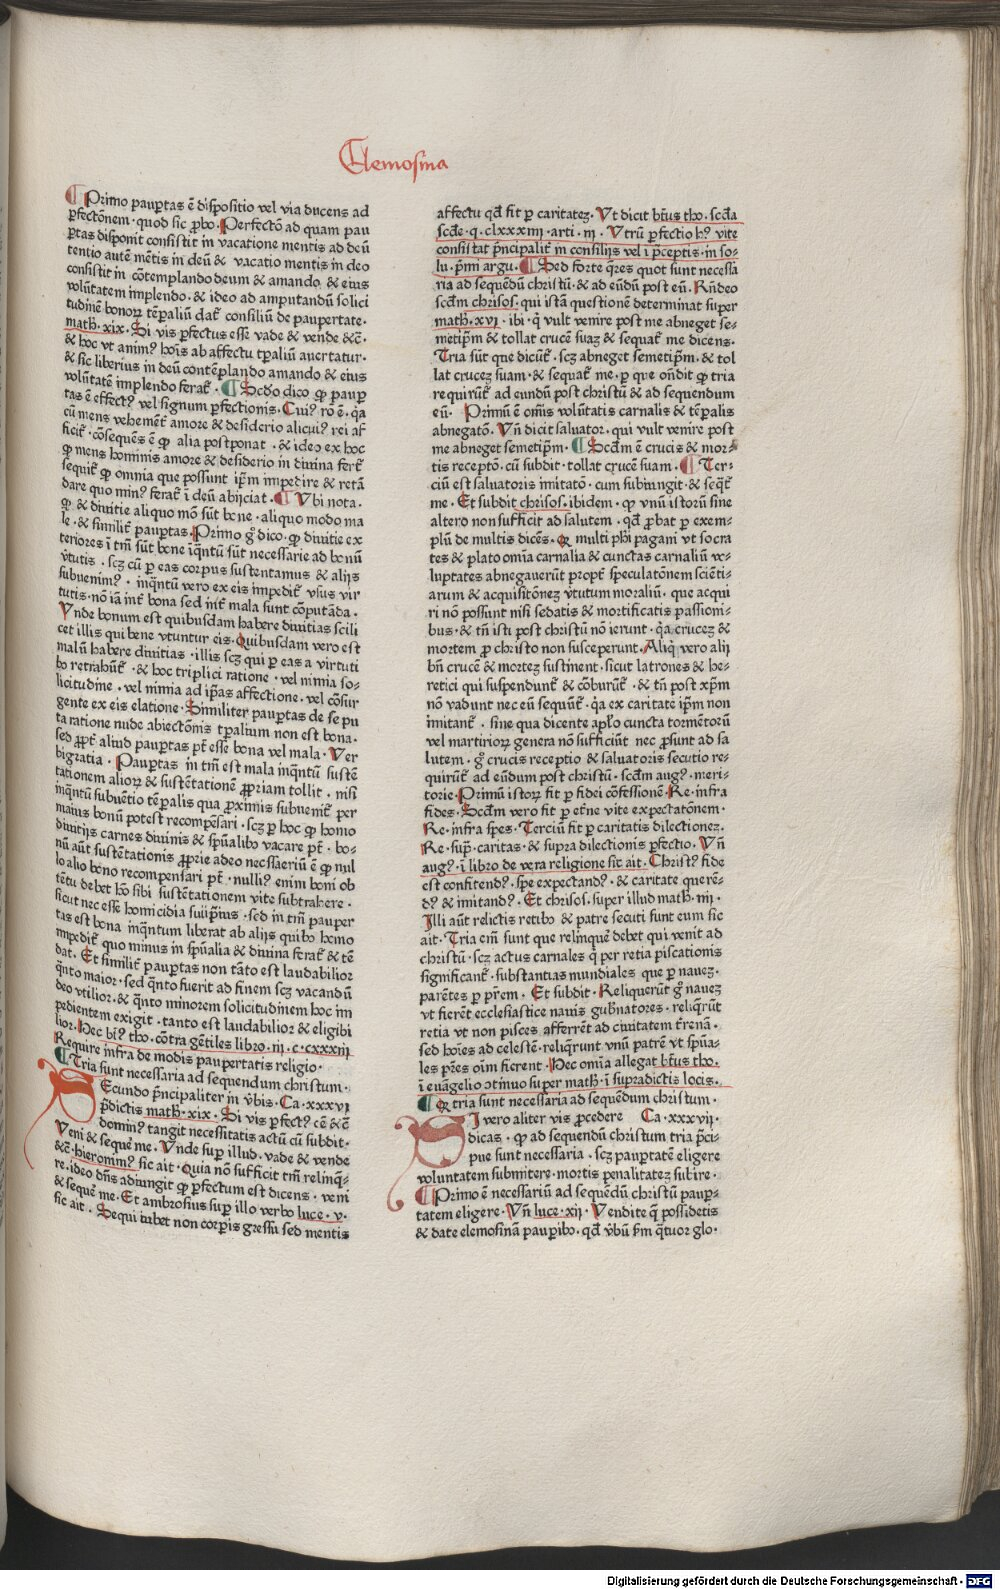 Elemosina
¶ Primo paup̱tas ē dispositio vel via ducens ad
p̱fectōnem · quod sic ꝓbo · Perfectō ad quam pau
p̱tas disponit consistit in vacatione mentis ad deū
tentio autē mētis in deū & vacatio mentis in deo
consistit in cōtemplando deum & amando & eius
volūtatem implendo · & ideo ad amputandū solici
tudinē bonoꝝ tēp̱aliū dat᷑ consiliū de paupertate ·
math · xix · Si vis p̱fectus esse vade & vende &c̄ ·
& hoc vt animꝰ hoīs ab affectu tp̱aliū auertatur ·
& sic liberius in deū contēplando amando & eius
volūtatē implendo ferat᷑ · ¶ Scd̄o dico ꝙ paup̱
tas ē effectꝰ vel signum p̱fectionis · Cuiꝰ ro ē · q̄a
cū mens vehemēt᷑ amore & desiderio alicuiꝰ rei af
ficit᷑ · cōsequēs ē ꝙ alia postponat · & ideo ex hoc
ꝙ mens hominis amore & desiderio in diuina fert᷑
sequit᷑ ꝙ omnia que possunt ip̄m impedire & retā
dare quo minꝰ ferat᷑ ī deū abijciat · ¶ Vbi nota ·
ꝙ & diuitie aliquo mō sūt bōne · aliquo modo ma
le · & similit᷑ paup̱tas · Primo g̊ dico · ꝙ diuitie ex
teriores ī tm̄ sūt bone īq̄ntū sūt necessarie ad bonū
v̄tutis · scꝫ cū p̱ eas corpus sustentamus & alijs
subuenimꝰ · inq̄ntū vero ex eis impedit᷑ vsus vir
tutis · nō iā int᷑ bona sed int᷑ mala sunt cōputāda ·
Vnde bonum est quibusdam habere diuitias scili
cet illis qui bene vtuntur eis · Quibusdam vero est
malū habere diuitias · illis scꝫ qui p̱ eas a virtuti
bo retrahūt᷑ · & hoc triplici ratione · vel nimia so-
licitudine · vel nimia ad ip̄as affectione · vel cōsur
gente ex eis elatione · Similiter paup̱tas de se pu
ta ratione nude abiectōnis tp̱alium non est bona ·
sed ꝓpt᷑ aliud paup̱tas pt̄ esse bona vel mala · Ver
bigratia · Paup̱tas in tm̄ est mala inq̄ntū sustē
tationem alioꝝ & sustētationē ꝓpriam tollit · nisi
inq̄ntū subuētio tēp̱alis qua ꝓximis subuenit᷑ per
maius bonū potest recompēsari · scꝫ p̱ hoc ꝙ homo
diuitijs carnes diuinis & spūalibo vacare pt̄ · bo-
nū aūt sustētationis ꝓprie adeo necssaeriū ē ꝙ nul
lo alio bono recompensari pt̄ · nulliꝰ enim boni ob
tētu debet hō sibi sustētationem vite subtrahere ·
sicut nec esse homicidia suiip̄ius · sed in tm̄ pauper
tas est bona inq̄ntum liberat ab alijs quibo homo
impedit᷑ quo minus in spūalia & diuina ferat᷑ & tē
dat · Et similit᷑ paup̱tas non tāto est laudabilior
q̄nto maior · sed q̄nto fuerit ad finem scꝫ vacandū
deo vtilior · & q̄nto minorem solicitudinem hoc im
pedientem exigit · tanto est laudabilior & eligibi
lior · Hec bt̄ꝰ tho · cōtra gētiles libro · iij · c · cxxxiij
Require infra de modis paupertatis religio ·
¶ Tria sunt necessaria ad sequendum christum ·
Secundo p̄ncipaliter in v̄bis · Ca · xxxvi
p̄dictis math · xix · Si vis p̱fectꝰ eē &c̄
dominꝰ tangit necessitatis actū cū subdit ·
Veni & sequeꝰ me · Vnde sup̱ illud · vade & vende
&c̄ · hieronimꝰ sic ait · Quia nō sufficit tm̄ relinq̄-
re · ideo dn̄s adiungit ꝙ p̱fectum est dicens · veni
& sequeꝰ me · Et ambrosius sup̱ illo verbo luce · v ·
sic ait · Sequi iubet non corp̱is gressu sed mentis
affectu qd̄ fit p̱ caritateꝫ · Vt dicit bt̄us tho · scd̄a
scd̄e · q · clxxxiiij · arti · iij · Vtrū p̱fectio hꝰ vite
consistat p̄ncipalit᷑ in consilijs vel ī p̄ceptis · in so-
lu · p̄mi argu · ¶ Sed forte q̄res quot sunt necessa
ria ad sequēdū christū · & ad eūdū post eū · Rn̄deo
scd̄m chrisos · qui istā questionē determinat super
math · xvi · ibi · q̄ vult venire post me abneget se-
metip̄m & tollat crucē suaꝫ & sequat᷑ me dicens ·
Tria sūt que dicūt᷑ · scꝫ abneget semetip̄m · & tol
lat cruceꝫ suam · & sequat᷑ me · p̱ que on̄dit ꝙ tria
requirūt᷑ ad eundū post christū & ad sequendum
eū · Primū ē om̄is volūtatis carnalis & tēp̱alis
abnegatō · Vn̄ dicit saluator · qui vult venire post
me abneget semetip̄m · ¶ Scd̄m ē crucis & mor-
tis receptō · cū subdit · tollat crucē suam · ¶ Ter-
ciū est saluatoris imitatō · cum subiungit · & seq̄t᷑
me · Et subdit chrisos · ibidem · ꝙ vnū istorū sine
altero non sufficit ad salutem · qd̄ ꝓbat p̱ exem-
plū de multis dicēs · Ꝙ multi ph̄i pagani vt socra
tes & plato om̄ia carnalia & cunctas carnaliū vo-
luptates abnegauerūt propt᷑ speculatōnem sciēti-
arum & acquisitōneꝫ v̄tutum moraliū · que acqui
ri nō possunt nisi sedatis & mortificatis passioni-
bus · & tn̄ isti post christū nō ierunt · q̄a cruceꝫ &
mortem ꝓ christo non susceperunt · Aliq̄ vero alij
bn̄ crucē & morteꝫ sustinent · sicut latrones & he-
retici qui suspendunt᷑ & cōburūt᷑ · & tn̄ post xp̄m
nō vadunt nec eū sequūt᷑ · q̄a ex caritate ip̄m non
imitant᷑ · sine qua dicente ap̄lo cuncta tormētorū
vel martirioꝝ genera nō sufficiūt nec ꝓsunt ad sa
lutem · g̊ crucis receptio & saluatoris secutio re-
quirūt᷑ ad eūdum post christū · scd̄m augꝰ · meri-
torie · Primū istoꝝ fit p̱ fidei cōfessionē · Re · infra
fides · Scd̄m vero fit p̱ et̄ne vite expectatōnem ·
Re · infra spes · Terciū fit p̱ caritatis dilectioneꝫ ·
Re · sup̱ · caritas · & supra dilectionis p̱fectio · Vn̄
augꝰ · ī libro de vera religione sic ait · Christꝰ fide
est confitendꝰ · spe expectandꝰ · & caritate querē-
dꝰ & imitandꝰ · Et chrisos · super illud math · iiij ·
Illi aūt relictis retibo & patre secuti sunt eum sic
ait · Tria em̄ sunt que relinquē debet qui venit ad
christū · scꝫ actus carnales q̄ per retia piscationis
significant᷑ · substantias mundiales que p̱ naueꝫ ·
parētes p̱ pr̄em · Et subdit · Reliquerūt g̊ naueꝫ
vt fierēt ecclesiastice nauis gub̄natores · reliq̄rūt
retia vt non pisces afferrēt ad ciuitatem t᷑renā ·
sed hoīes ad celestē · reliq̄runt vnū patrē vt spūa-
les pr̄es oīm fierent · Hec om̄ia allegat bt̄us tho ·
ī euāgelio ↄtinuo super math · ī supradictis locis ·
¶ Ꝙ tria sunt necessaria ad sequēdum christum ·
Si vero aliter vis ꝓcedere Ca · xxxvij ·
dicas · ꝙ ad sequēdū christum tria p̄nci-
pue sunt necessaria · scꝫ paup̱tatē eligere
voluntatem submitere · mortis penalitateꝫ subire ·
¶ Primo ē necessariū ad sequēdū christū paup̱-
tatem eligere · Vn̄ luce · xij · Vendite q̄ possidetis
& date elemosinā paup̱ibo · qd̄ v̄bū s̄m q̄tuor glo ·
Digitalisierung gefördert durch die Deutsche Forschungsgemeinschaft - DFG